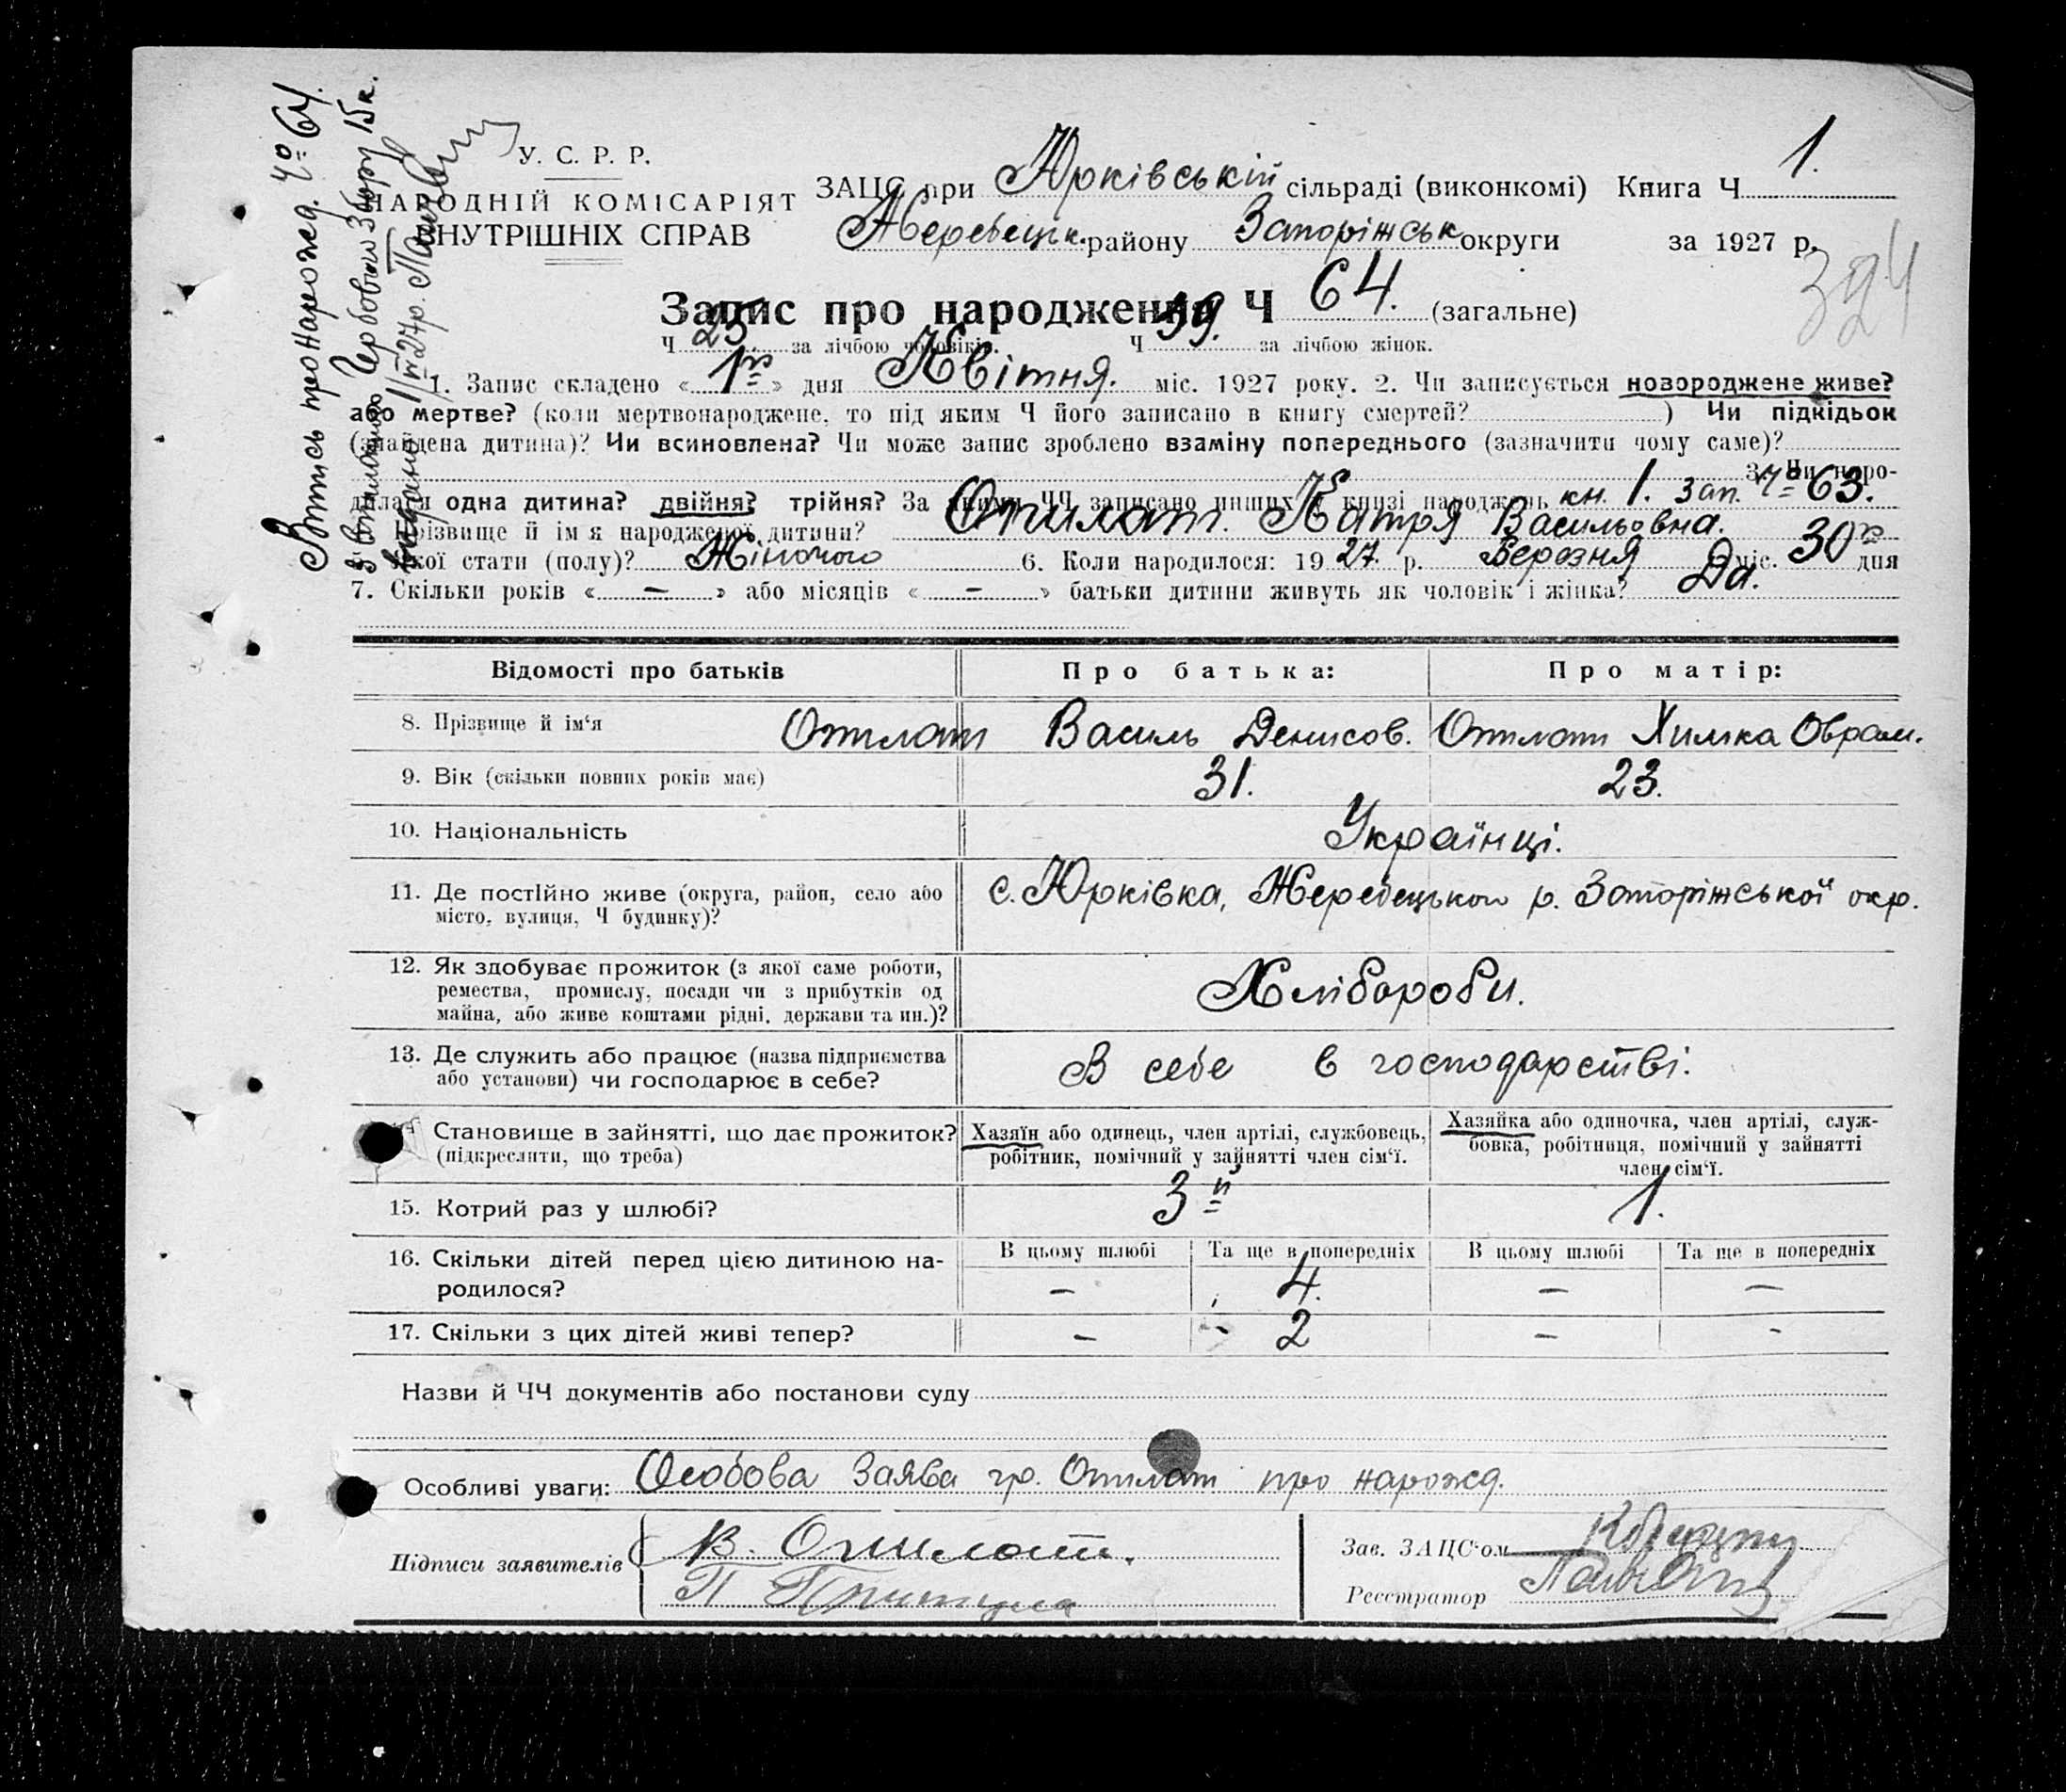 Випись про нарожд. Ч° 64.
Гербовий збору 15 к.
У. С. Р. Р.
НАРОДНІЙ КОМІСАРІЯТ
ВНУТРІШНІХ СПРАВ
ЗАЦС при Юрківській сільраді (виконкомі) Книга Ч 1.
Жеребецьк. району Запоріжськ округи за 1927 р.
394
Запис про народження Ч 64. (загальне)
Ч 25 за лічбою чоловіків. Ч 39. за лічбою жінок.
1. Запис складено « 1го » дня Квітня. міс. 1927 року. 2. Чи записується новороджене живе?
або мертве? (коли мертвонароджене, то під яким Ч його записано в книгу смертей? ) Чи підкідьок
(знайдена дитина)? Чи всиновлена? Чи може запис зроблено взаміну попереднього (зазначити чому саме)?
3. Чи наро-
дилася одна дитина? двійня? трійня? За якими ЧЧ записано инших у книзі народжень кн. 1. зап. Ч° 63.
Прізвище й імя народженої дитини? Опилат. Катря Васильовна.
Якої стати (полу)? Жіночого 6. Коли народилося: 1927 р. Березня міс. 30го дня
7. Скільки років « — » або місяців « — » батьки дитини живуть як чоловік і жінка? Да.
Відомості про батьків Про батька: Про матір:
8. Прізвище й ім‘я Опилат Василь Денисов. Опилат Химка Оврам.
9. Вік (скільки повних років має) 31. 23.
10. Національність Українці.
11. Де постійно живе (округа, район, село або с. Юрківка, Жеребецького р. Запоріжської окр.
місто, вулиця, Ч будинку)?
12. Як здобуває прожиток (з якої саме роботи,
ремества, промислу, посади чи з прибутків од Хлібороби.
майна, або живе коштами рідні, держави та ин.)?
13. Де служить або працює (назва підприємства В себе в господарстві.
або установи) чи господарює в себе?
Становище в зайнятті, що дає прожиток? Хазяїн або одинець, член артілі, службовець, Хазяйка або одиночка, член артілі, служ-
(підкреслити, що треба) робітник, помічний у зайнятті член сім‘ї. бовка, робітниця, помічний у зайнятті
член сім‘ї.
15. Котрий раз у шлюбі? 3й 1.
16. Скільки дітей перед цією дитиною на- В цьому шлюбі Та ще в попередніх В цьому шлюбі Та ще в попередніх
родилося? — 4. — —
17. Скільки з цих дітей живі тепер? — 2 — -
Назви й ЧЧ документів або постанови суду
Особливі уваги: Особова заява гр. Опилат про нарожд.
Підписи заявителів В. Опилат.
П Притула
Зав. ЗАЦС‘ом
Реєстратор